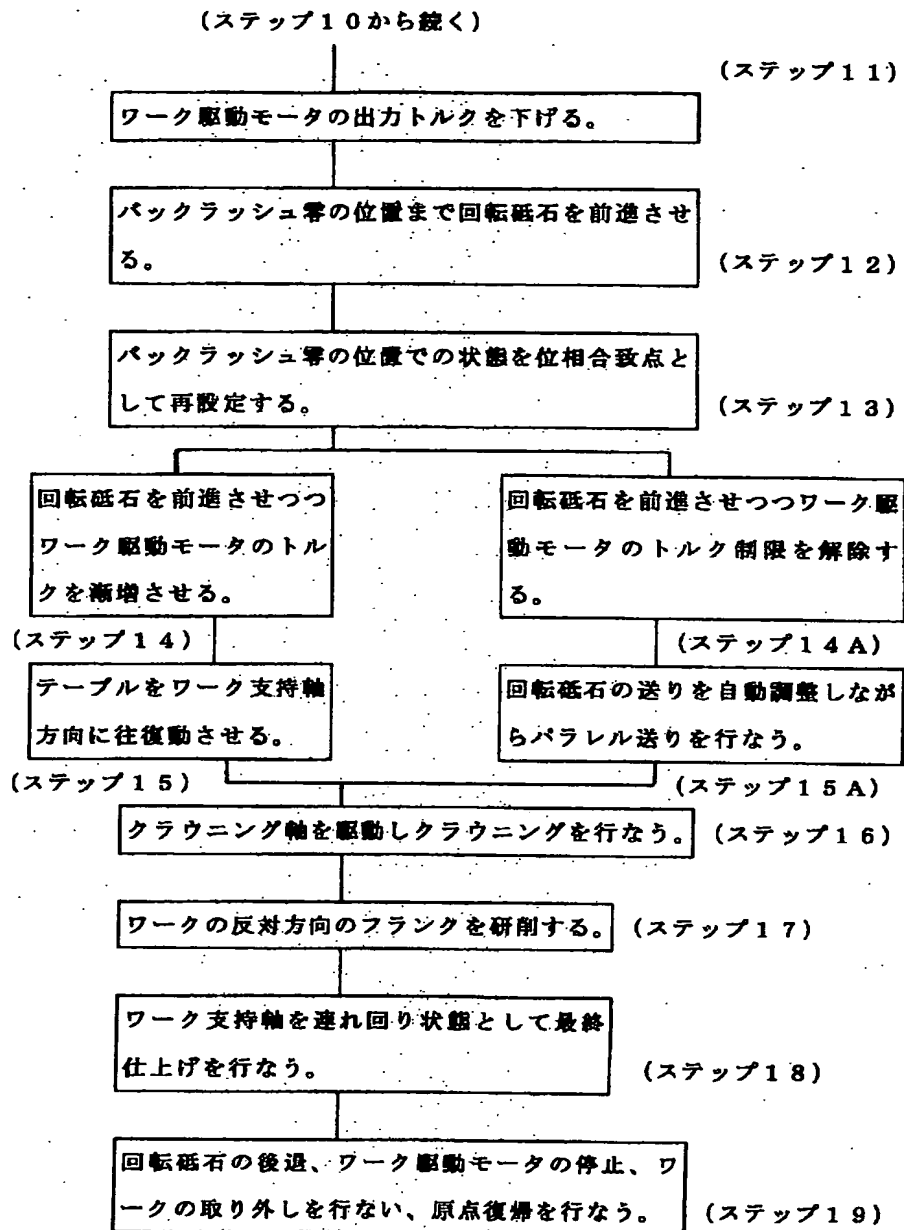 (ステップ10から続く)
(ステップ11)
ワーク駆動モータの出力トルクを下げる。
バックラッシュ零の位置まで回転砥石を前進させ
る。
(ステップ12)
バックラッシュ零の位置での状態を位相合致点と
して再設定する。
(ステップ13)
回転砥石を前進させつつ
ワーク駆動モータのトル
クを漸増させる。
(ステップ14)
回転砥石を前進させつつワーク駆
動モータのトルク制限を解除す
る。
(ステップ14A)
テーブルをワーク支持軸
方向に往復動させる。
(ステップ15)
回転砥石の送りを自動調整しなが
らパラレル送りを行なう。
(ステップ15A)
クラウニング軸を駆動しクラウニングを行なう。
(ステップ16)
ワークの反対方向のフランクを研削する。
(ステップ17)
ワーク支持軸を連れ回り状態として最終
仕上げを行なう。
(ステップ18)
回転砥石の後退、ワーク駆動モータの停止、ワ
ークの取り外しを行ない、原点復帰を行なう。
(ステップ19)